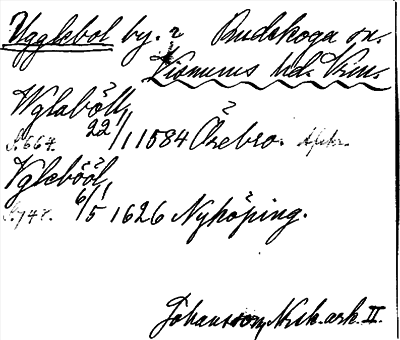 Ugglebol by. 2 Rudskoga sn.
Visnums hd. Vrm.
Wglaböll
S. 664. 22/11 1584 Örebro. Afskr.
Vglebööl
S. 747. 6/5 1626 Nyköping.
Johansson, Nsk. ark. II.